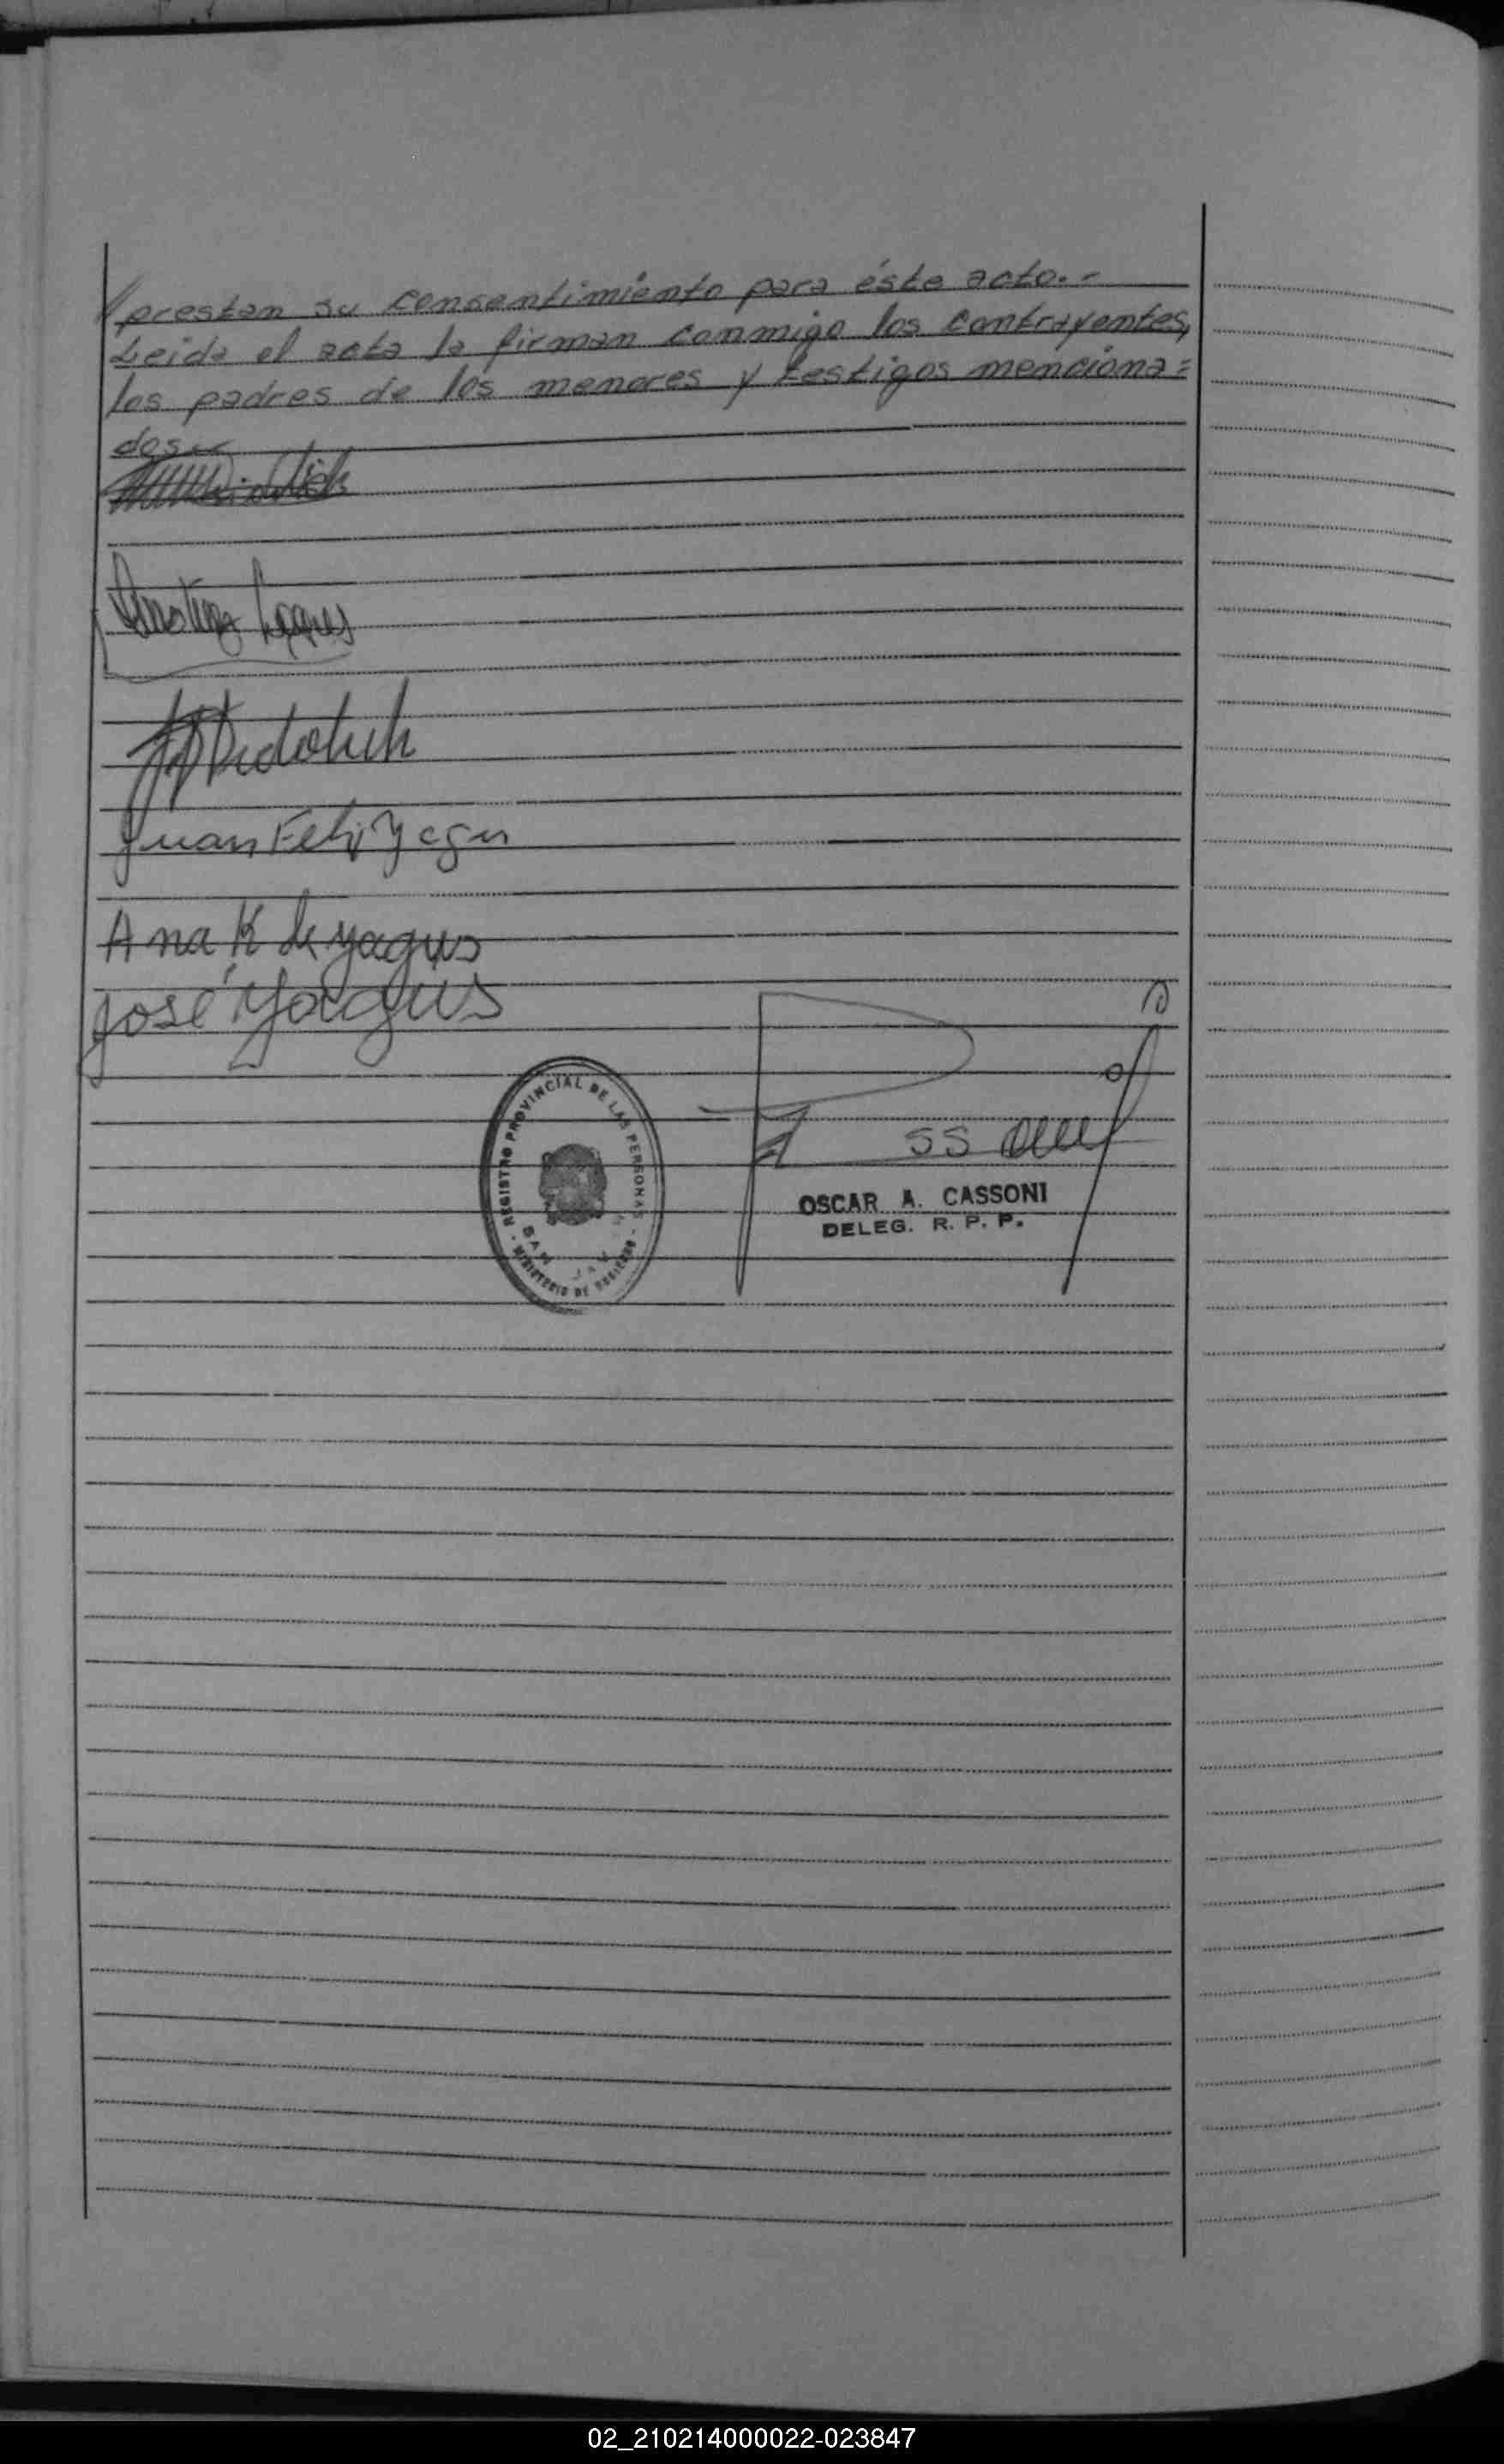 //prestan su consentimiento para éste acto.-
Leida el acta la firman conmigo los contrayentes,
los padres de los menores y testigos menciona=
dos.-
Juan Felix Yagus
Ana K de yagus
José Yagus
REGISTRO PROVINCIAL DE LAS PERSONAS
SAN JAV
- MINISTERIO DE GOBIERNO -
OSCAR A. CASSONI
DELEG. R. P. P.
02_210214000022-023847